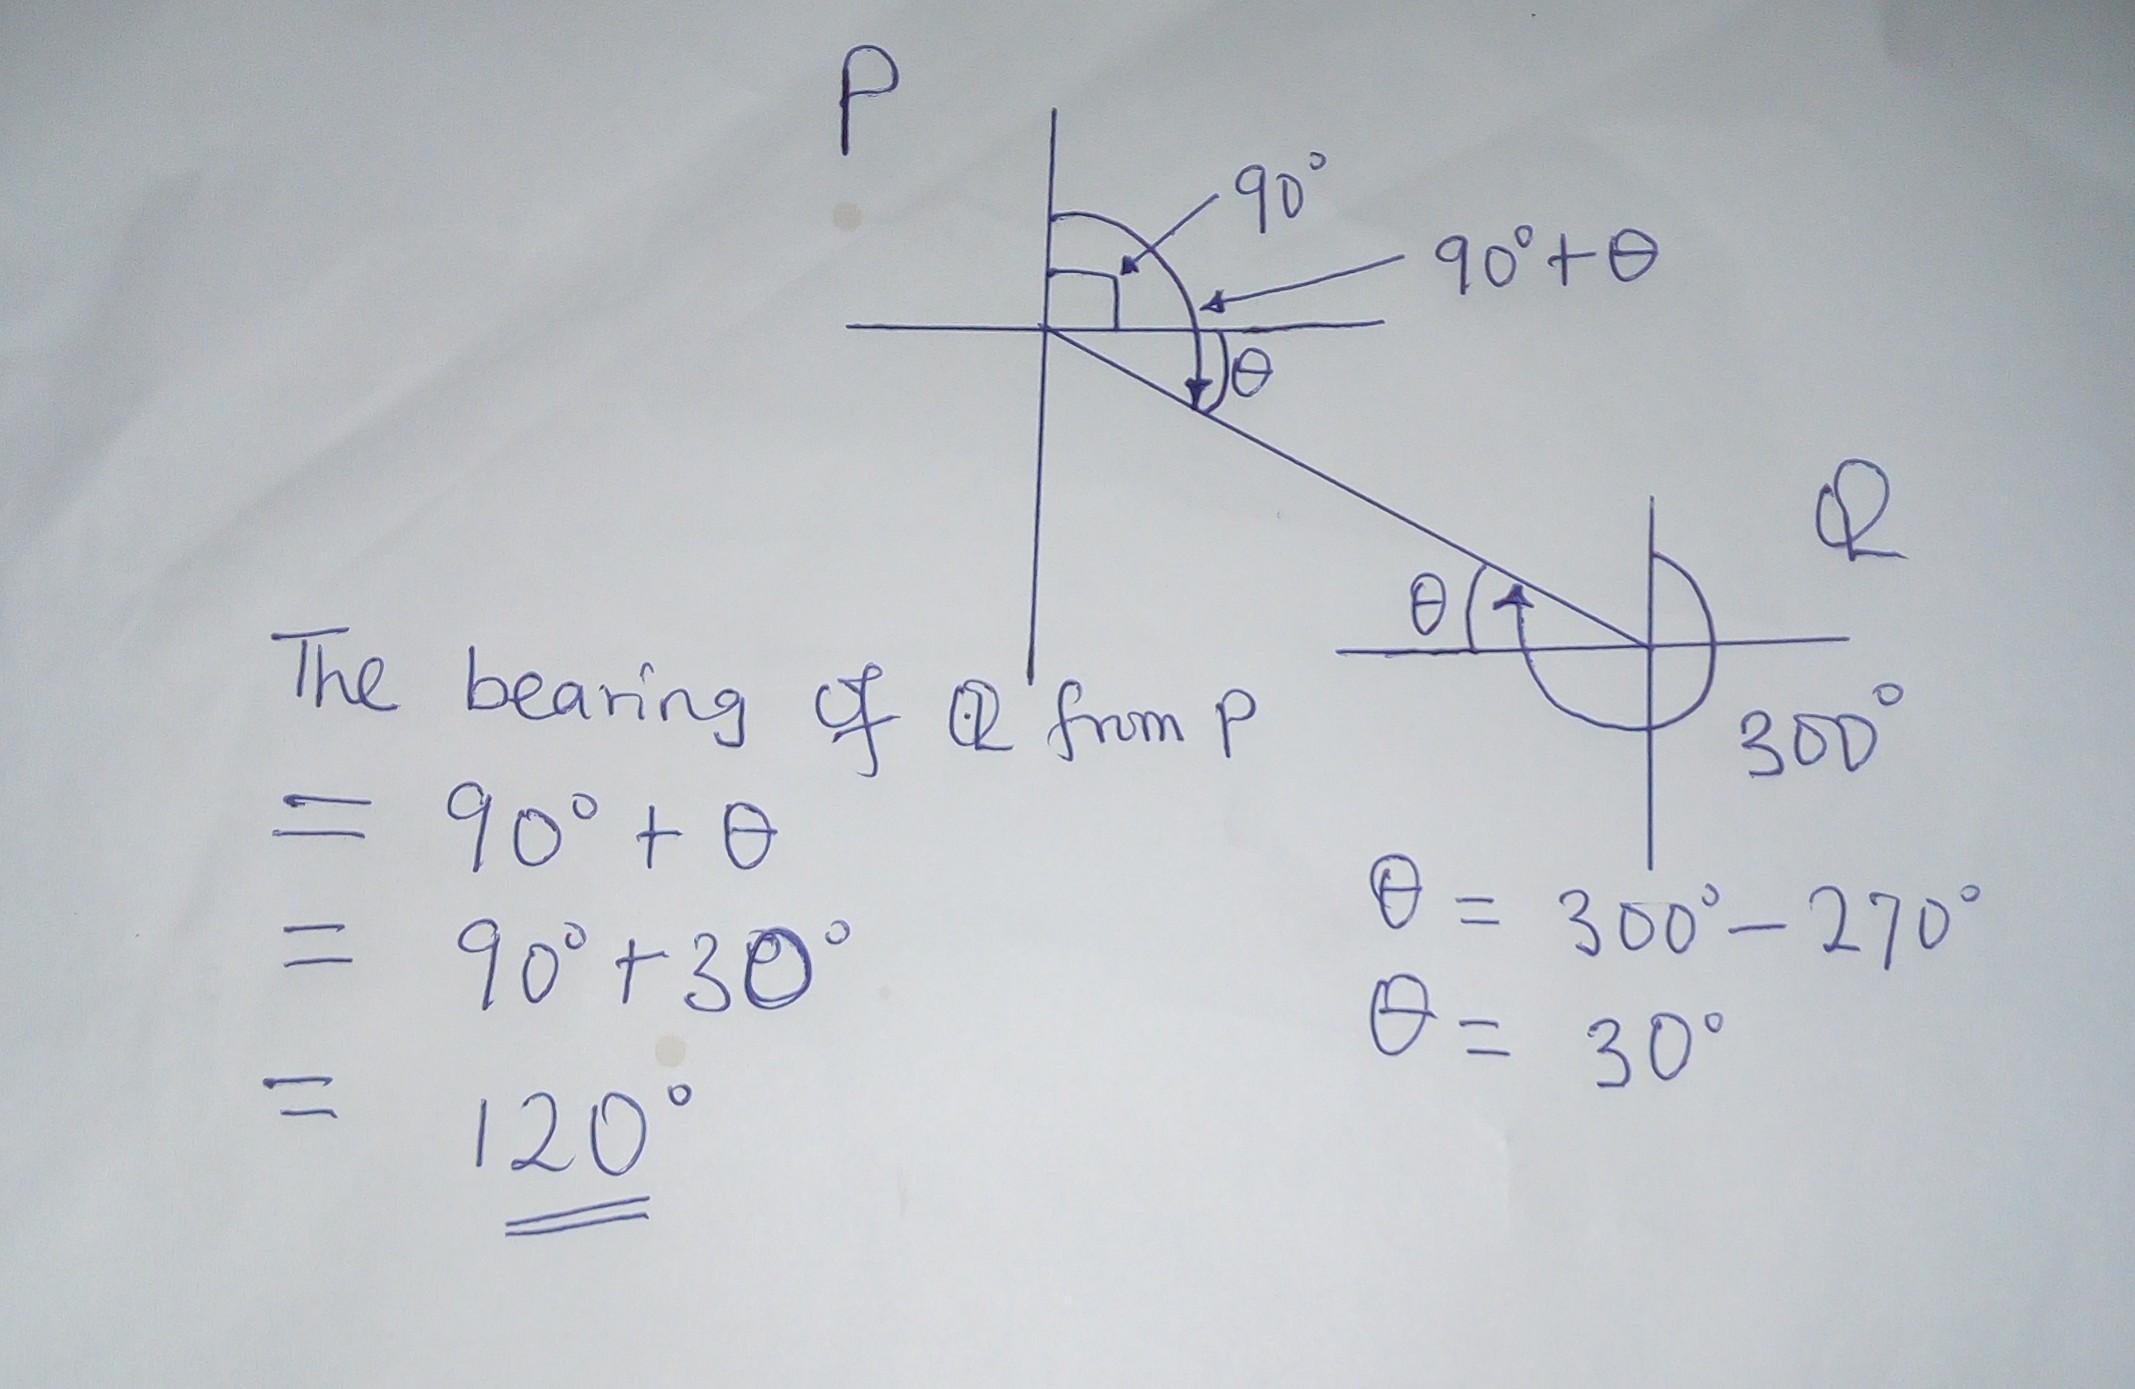 P
90°
90°+θ
θ
Q
θ
300°
The bearing of Q from P
= 90° + θ
= 90° + 30°
= 120°
θ = 300° - 270°
θ = 30°